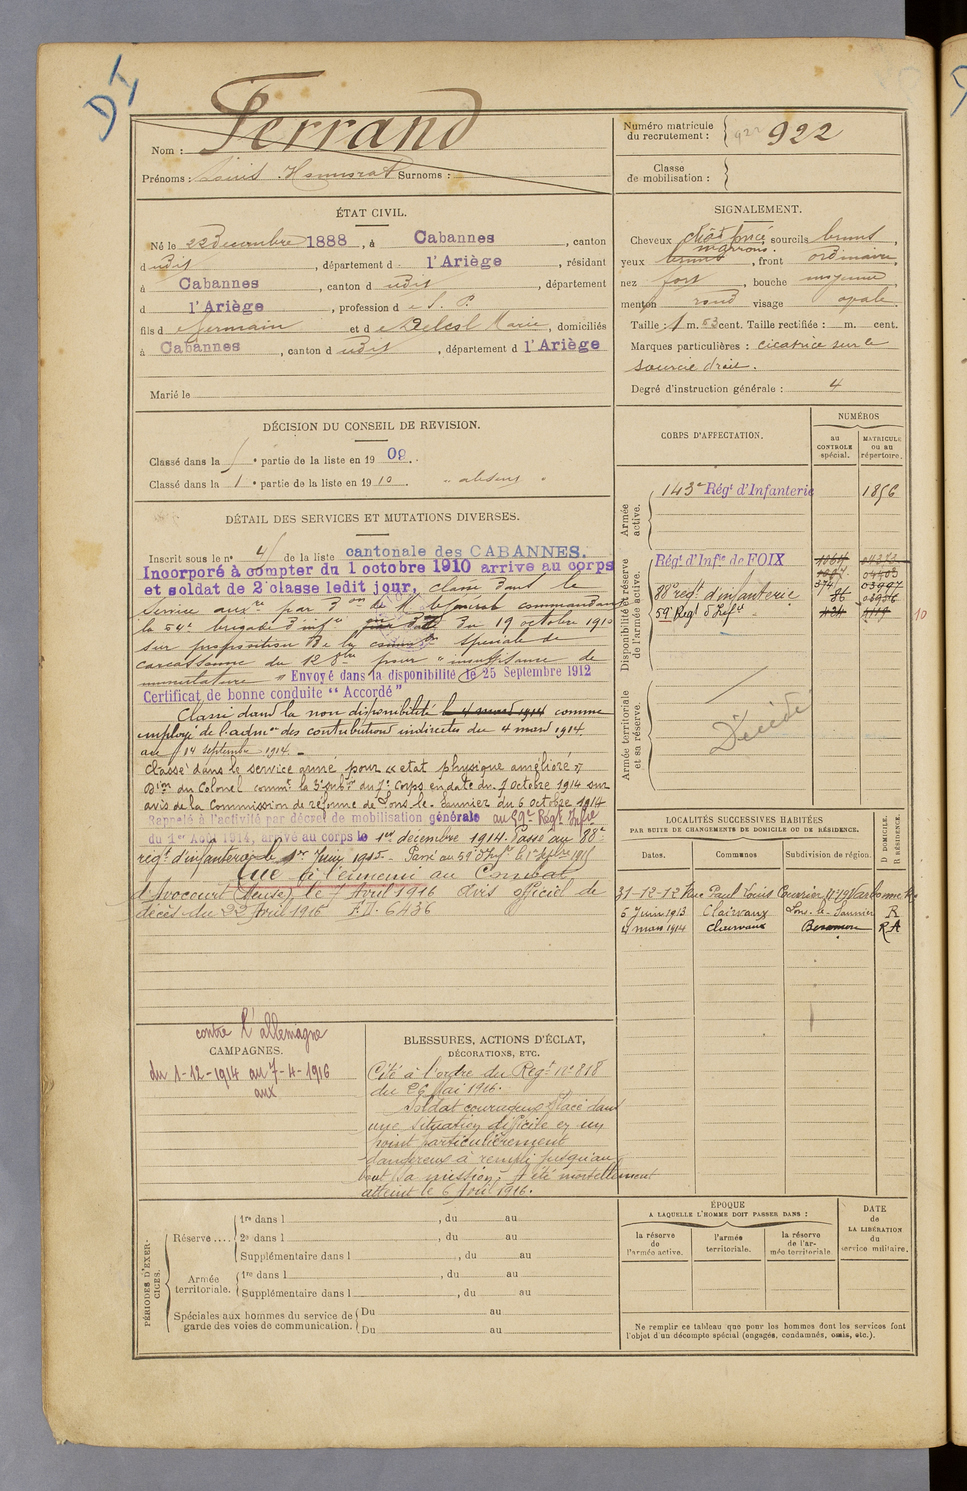 Nom : Ferrand
Prénoms : Louis Surnoms :
Numéro matricule du recrutement : 922
Classe de mobilisation :
ÉTAT CIVIL.
Né le 22 Decembre 1888, à Cabannes, canton
d udit, département d l'Ariège, résidant
à Cabannes, canton d udit, département
d l'Ariège, profession d e S. P.
fils d e Germain et d e Marie, domiciliés
à Cabannes, canton d udit, département d l'Ariège
Marié le
SIGNALEMENT.
Cheveux chât foncé, sourcils bruns,
yeux marrons, front ordinaire,
nez fort, bouche moyenne
menton rond visage ovale
Taille : 1 m. 53 cent. Taille rectifiée : m. cent.
Marques particulières : cicatrice sur le
sourcil droit.
Degré d'instruction générale : 4
DÉCISION DU CONSEIL DE REVISION.
Classé dans la e partie de la liste en 19 09.
Classé dans la 1 e partie de la liste en 1910. " absent "
DÉTAIL DES SERVICES ET MUTATIONS DIVERSES.
Inscrit sous le n° 4 de la liste cantonale des CABANNES.
Incorporé à compter du 1 octobre 1910 arrive au corps
et soldat de 2e classe ledit jour, classé dans le
service auxre par Don de Mr le général commandant
la 54e brigade d'infie du 19 octobre 1910
sur proposition de la spéciale de
Carcassonne du 12 8bre pour "insuffisance de
" Envoyé dans la disponibilité le 25 Septembre 1912
Certificat de bonne conduite "Accordé"
Classé dans la non disponibilité le 4 mars 1914 comme
employé de l'admon des contributions indirectes du 4 mars 1914
au 14 septembre 1914.
Classé dans le service armé pour "état physique amélioré"
Don du Colonel commt la 3e subon du 7e Corps en date du 7 octobre 1914 sur
avis de la Commission de réforme de Lons le Saunier du 6 octobre 1914
Rappelé à l'activité par décret de mobilisation générale au 59e Régt Infie
du 1er Août 1914, arrivé au corps le 1er décembre 1914. Passé au 88e
régt d'infanterie le 1er Juin 1915. Passé au 59e d'Inf le
Tué à l'ennemi au Combat
d'Avocourt (Meuse) le 7 Avril 1916 Avis officiel de
décès du 22 Avril 1916 F.D. 6436
CORPS D'AFFECTATION.
NUMÉROS
au CONTROLE spécial.
MATRICULE ou au répertoire.
Armée active.
143e Régt d'Infanterie 1856
Disponibilité et réserve de l'armée active.
Régt d'Infie de FOIX
88e regt d'infanterie
59 Regt d'Inft
10
Armée territoriale et sa réserve.
Décédé
LOCALITÉS SUCCESSIVES HABITÉES
PAR SUITE DE CHANGEMENTS DE DOMICILE OU DE RÉSIDENCE.
Dates. Communes Subdivision de région. D DOMICILE. R RÉSIDENCE.
31-12-12 Rue Paul Louis Courrier N°19 Narbonne R.
5 Juin 1913 Clairvaux Lons-le-Saunier R
4 mars 1914 Clairvaux Besançon R A
contre l'Allemagne
CAMPAGNES.
du 1-12-1914 au 7-4-1916
aux
BLESSURES, ACTIONS D'ÉCLAT,
DÉCORATIONS, ETC.
Cité à l'ordre du Régt N° 818
du 26 Mai 1916.
Soldat courageux placé dans
une situation difficile en un
point particulièrement
dangereux a rempli jusqu'au
bout sa mission, a été mortellement
atteint le 6 Avril 1916.
PÉRIODES D'EXERCICES.
Réserve.... 1re dans l , du au
2e dans l , du au
Supplémentaire dans l , du au
Armée territoriale. 1re dans l , du au
Supplémentaire dans l , du au
Spéciales aux hommes du service de garde des voies de communication. Du au
Du au
ÉPOQUE
A LAQUELLE L'HOMME DOIT PASSER DANS :
la réserve de l'armée active.
l'armée territoriale.
la réserve de l'armée territoriale
DATE de LA LIBÉRATION du service militaire.
Ne remplir ce tableau que pour les hommes dont les services font
l'objet d'un décompte spécial (engagés, condamnés, omis, etc.).